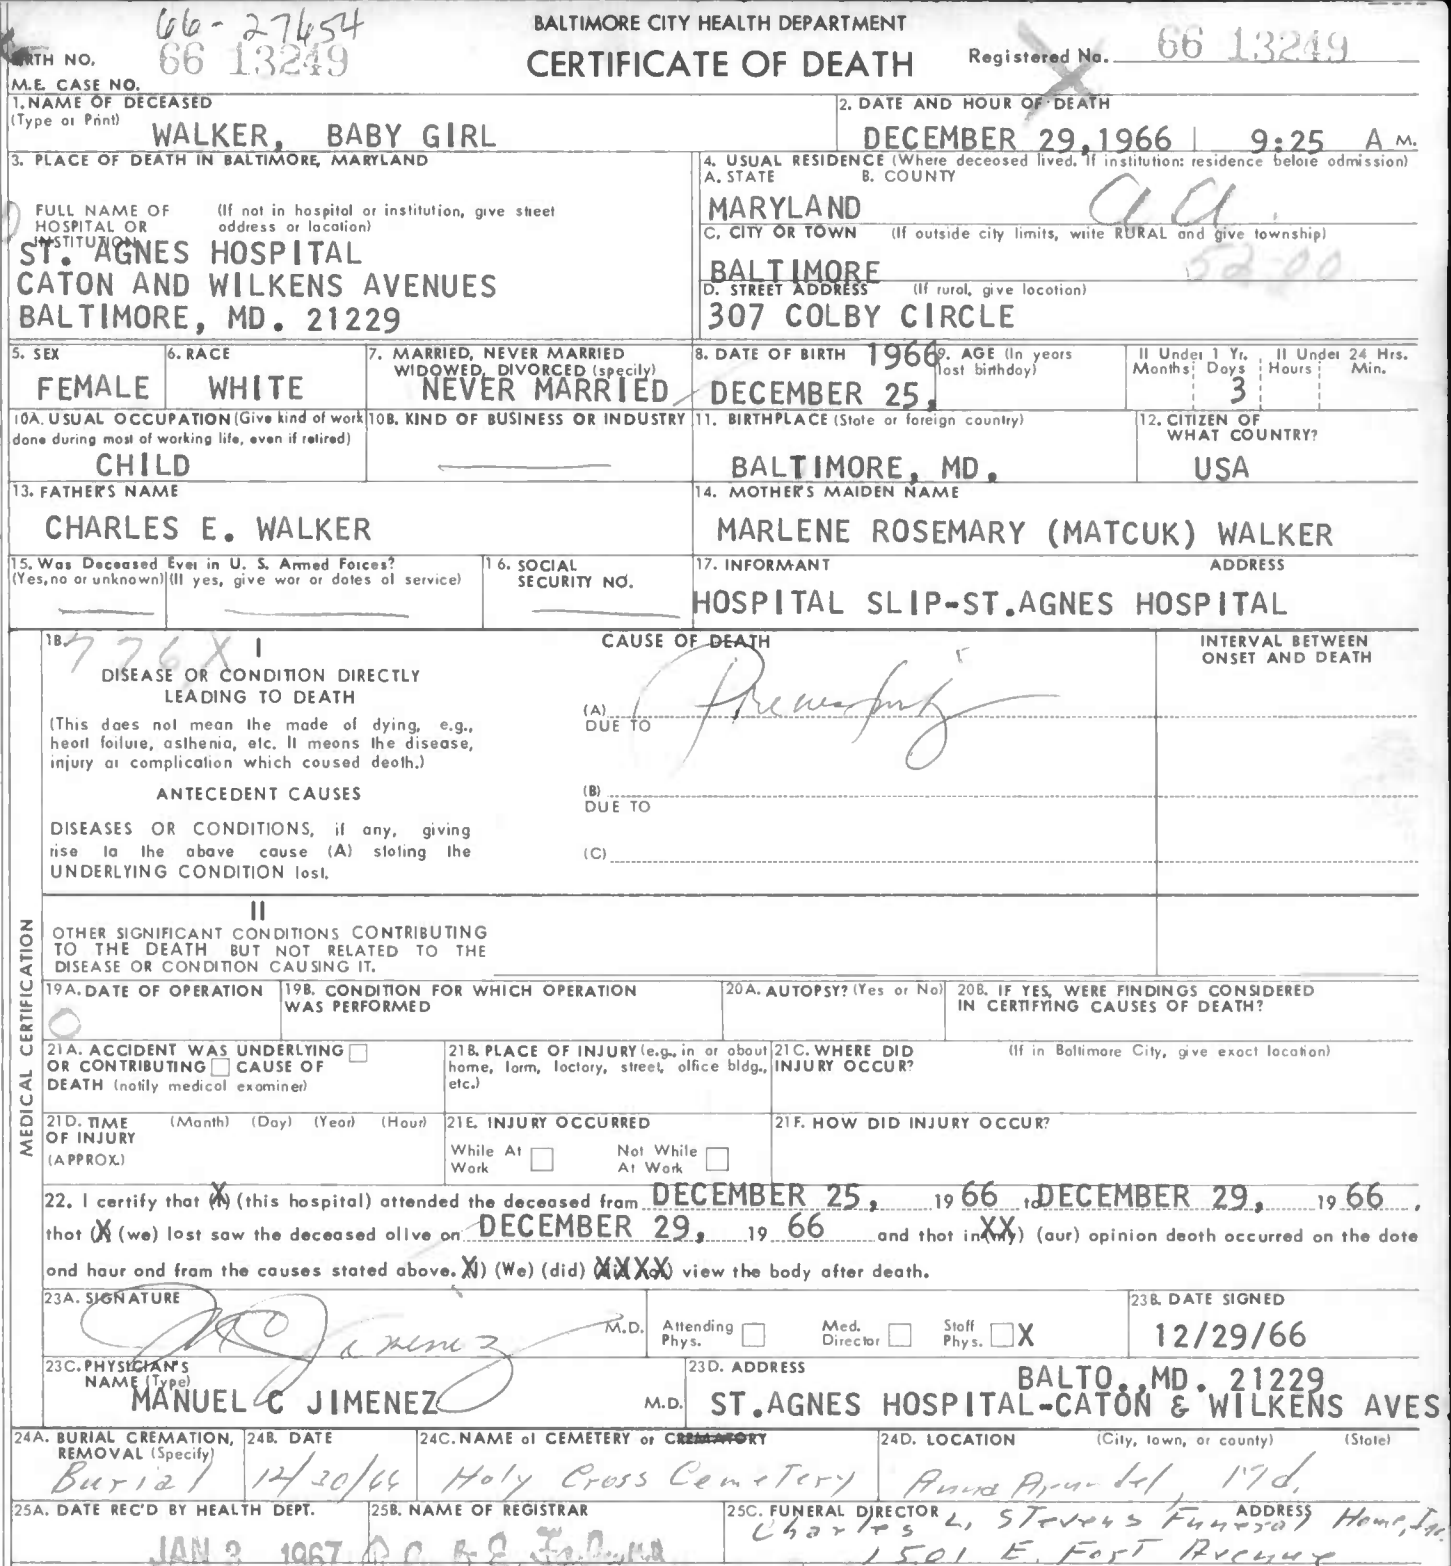 66-27654
BALTIMORE CITY HEALTH DEPARTMENT
BIRTH NO. 66 13249
CERTIFICATE OF DEATH
Registered No. 66 13249
M.E. CASE NO.
1. NAME OF DECEASED
(Type or Print)
WALKER, BABY GIRL
2. DATE AND HOUR OF DEATH
DECEMBER 29,1966 | 9:25 A M.
3. PLACE OF DEATH IN BALTIMORE, MARYLAND
FULL NAME OF HOSPITAL OR INSTITUTION
(If not in hospital or institution, give street address or location)
ST. AGNES HOSPITAL
CATON AND WILKENS AVENUES
BALTIMORE, MD. 21229
4. USUAL RESIDENCE (Where deceased lived. If institution: residence before admission)
A. STATE B. COUNTY
MARYLAND
a a.
C. CITY OR TOWN (If outside city limits, write RURAL and give township)
BALTIMORE
52-00
D. STREET ADDRESS (If rural, give location)
307 COLBY CIRCLE
5. SEX
FEMALE
6. RACE
WHITE
7. MARRIED, NEVER MARRIED
WIDOWED, DIVORCED (specify)
NEVER MARRIED
8. DATE OF BIRTH 1966
DECEMBER 25,
9. AGE (In years last birthday)
If Under 1 Yr. If Under 24 Hrs.
Months Days Hours Min.
3
10A. USUAL OCCUPATION (Give kind of work
done during most of working life, even if retired)
CHILD
10B. KIND OF BUSINESS OR INDUSTRY
11. BIRTHPLACE (State or foreign country)
BALTIMORE, MD.
12. CITIZEN OF
WHAT COUNTRY?
USA
13. FATHER'S NAME
CHARLES E. WALKER
14. MOTHER'S MAIDEN NAME
MARLENE ROSEMARY (MATCUK) WALKER
15. Was Deceased Ever in U. S. Armed Forces?
(Yes, no or unknown) (If yes, give war or dates of service)
16. SOCIAL
SECURITY NO.
17. INFORMANT ADDRESS
HOSPITAL SLIP-ST.AGNES HOSPITAL
18. 776X I
CAUSE OF DEATH
INTERVAL BETWEEN
ONSET AND DEATH
DISEASE OR CONDITION DIRECTLY
LEADING TO DEATH
(This does not mean the mode of dying, e.g.,
heart failure, asthenia, etc. It means the disease,
injury or complication which caused death.)
(A) Prematurity
DUE TO
ANTECEDENT CAUSES
(B)
DUE TO
DISEASES OR CONDITIONS, if any, giving
rise to the above cause (A) stating the
UNDERLYING CONDITION last.
(C)
II
OTHER SIGNIFICANT CONDITIONS CONTRIBUTING
TO THE DEATH BUT NOT RELATED TO THE
DISEASE OR CONDITION CAUSING IT.
MEDICAL CERTIFICATION
19A. DATE OF OPERATION
0
19B. CONDITION FOR WHICH OPERATION
WAS PERFORMED
20A. AUTOPSY? (Yes or No)
20B. IF YES, WERE FINDINGS CONSIDERED
IN CERTIFYING CAUSES OF DEATH?
21A. ACCIDENT WAS UNDERLYING
OR CONTRIBUTING CAUSE OF
DEATH (notify medical examiner)
21B. PLACE OF INJURY (e.g., in or about
home, farm, factory, street, office bldg.,
etc.)
21C. WHERE DID (If in Baltimore City, give exact location)
INJURY OCCUR?
21D. TIME (Month) (Day) (Year) (Hour)
OF INJURY
(APPROX.)
21E. INJURY OCCURRED
While At Work Not While At Work
21F. HOW DID INJURY OCCUR?
22. I certify that (X) (this hospital) attended the deceased from DECEMBER 25, 19 66 to DECEMBER 29, 19 66,
that (X) (we) last saw the deceased alive on DECEMBER 29, 19 66 and that in (my) (our) opinion death occurred on the date
and hour and from the causes stated above. (I) (We) (did) (XXXX) view the body after death.
23A. SIGNATURE
M C Jimenez M.D.
Attending Phys. Med. Director Staff Phys. X
23B. DATE SIGNED
12/29/66
23C. PHYSICIAN'S
NAME (Type)
MANUEL C JIMENEZ M.D.
23D. ADDRESS
BALTO.,MD. 21229
ST.AGNES HOSPITAL-CATON & WILKENS AVES
24A. BURIAL CREMATION,
REMOVAL (Specify)
Burial
24B. DATE
12/30/66
24C. NAME of CEMETERY or CREMATORY
Holy Cross Cemetery
24D. LOCATION (City, town, or county) (State)
Anna Arundel, Md.
25A. DATE REC'D BY HEALTH DEPT.
JAN 3 1967
25B. NAME OF REGISTRAR
25C. FUNERAL DIRECTOR ADDRESS
Charles L. Stevens Funeral Home, Inc.
1501 E. Fort Avenue